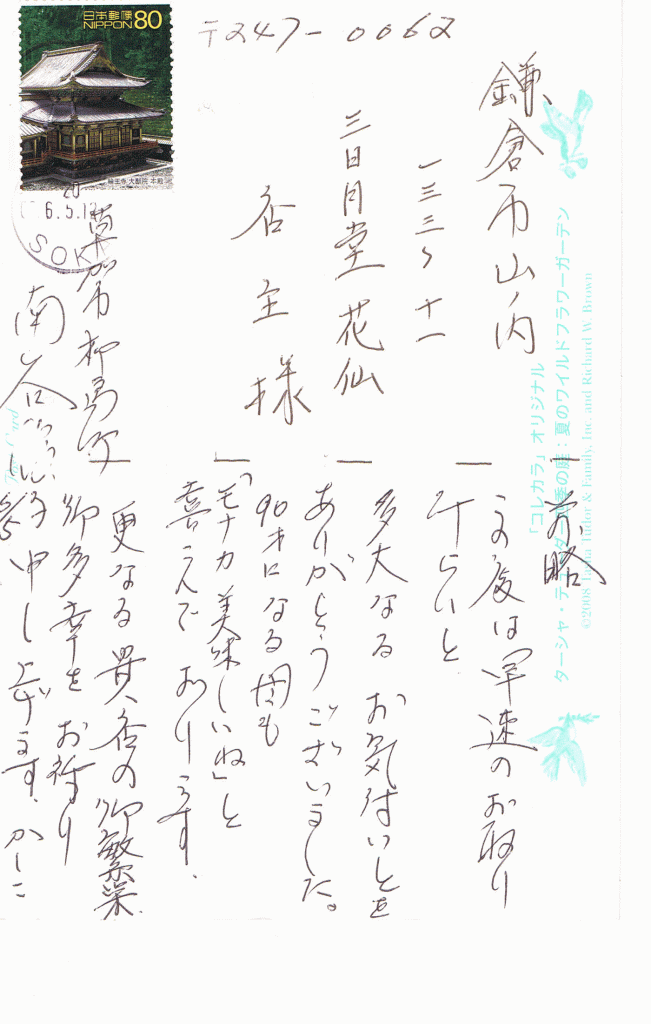 日本郵便 80
NIPPON
輪王寺 大猷院 本殿
6.5.1
SOK
〒247-0062
鎌倉市山ノ内
一三三〜十一
三日月堂 花仙
店主 様
草加市柳島町
南谷
「コレカラ」オリジナル
ターシャ・テューダー 四季の庭：夏のワイルドフラワーガーデン
©2008 Tasha Tudor & Family, Inc. and Richard W. Brown
前略
この度は早速のお取り
計らいと
多大なる お気付いとを
ありがとうございました。
90才になる母も
「モナカ美味しいね」と
喜こんでおります。
更なる貴店の御繁栄、
御多幸をお祈り
申し上げます、かしこ